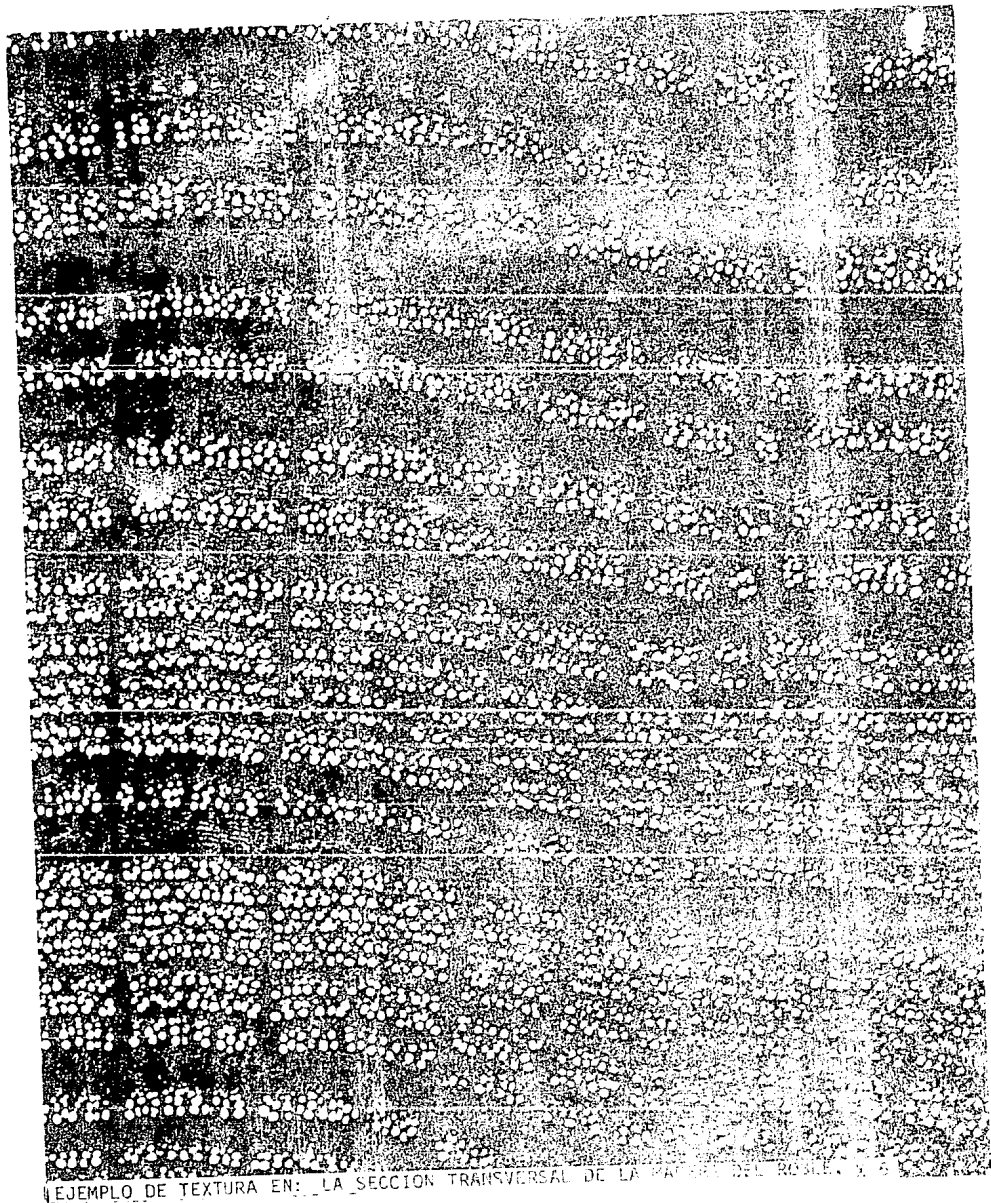 EJEMPLO DE TEXTURA EN: LA SECCION TRANSVERSAL DE LA DEL ROBLE.